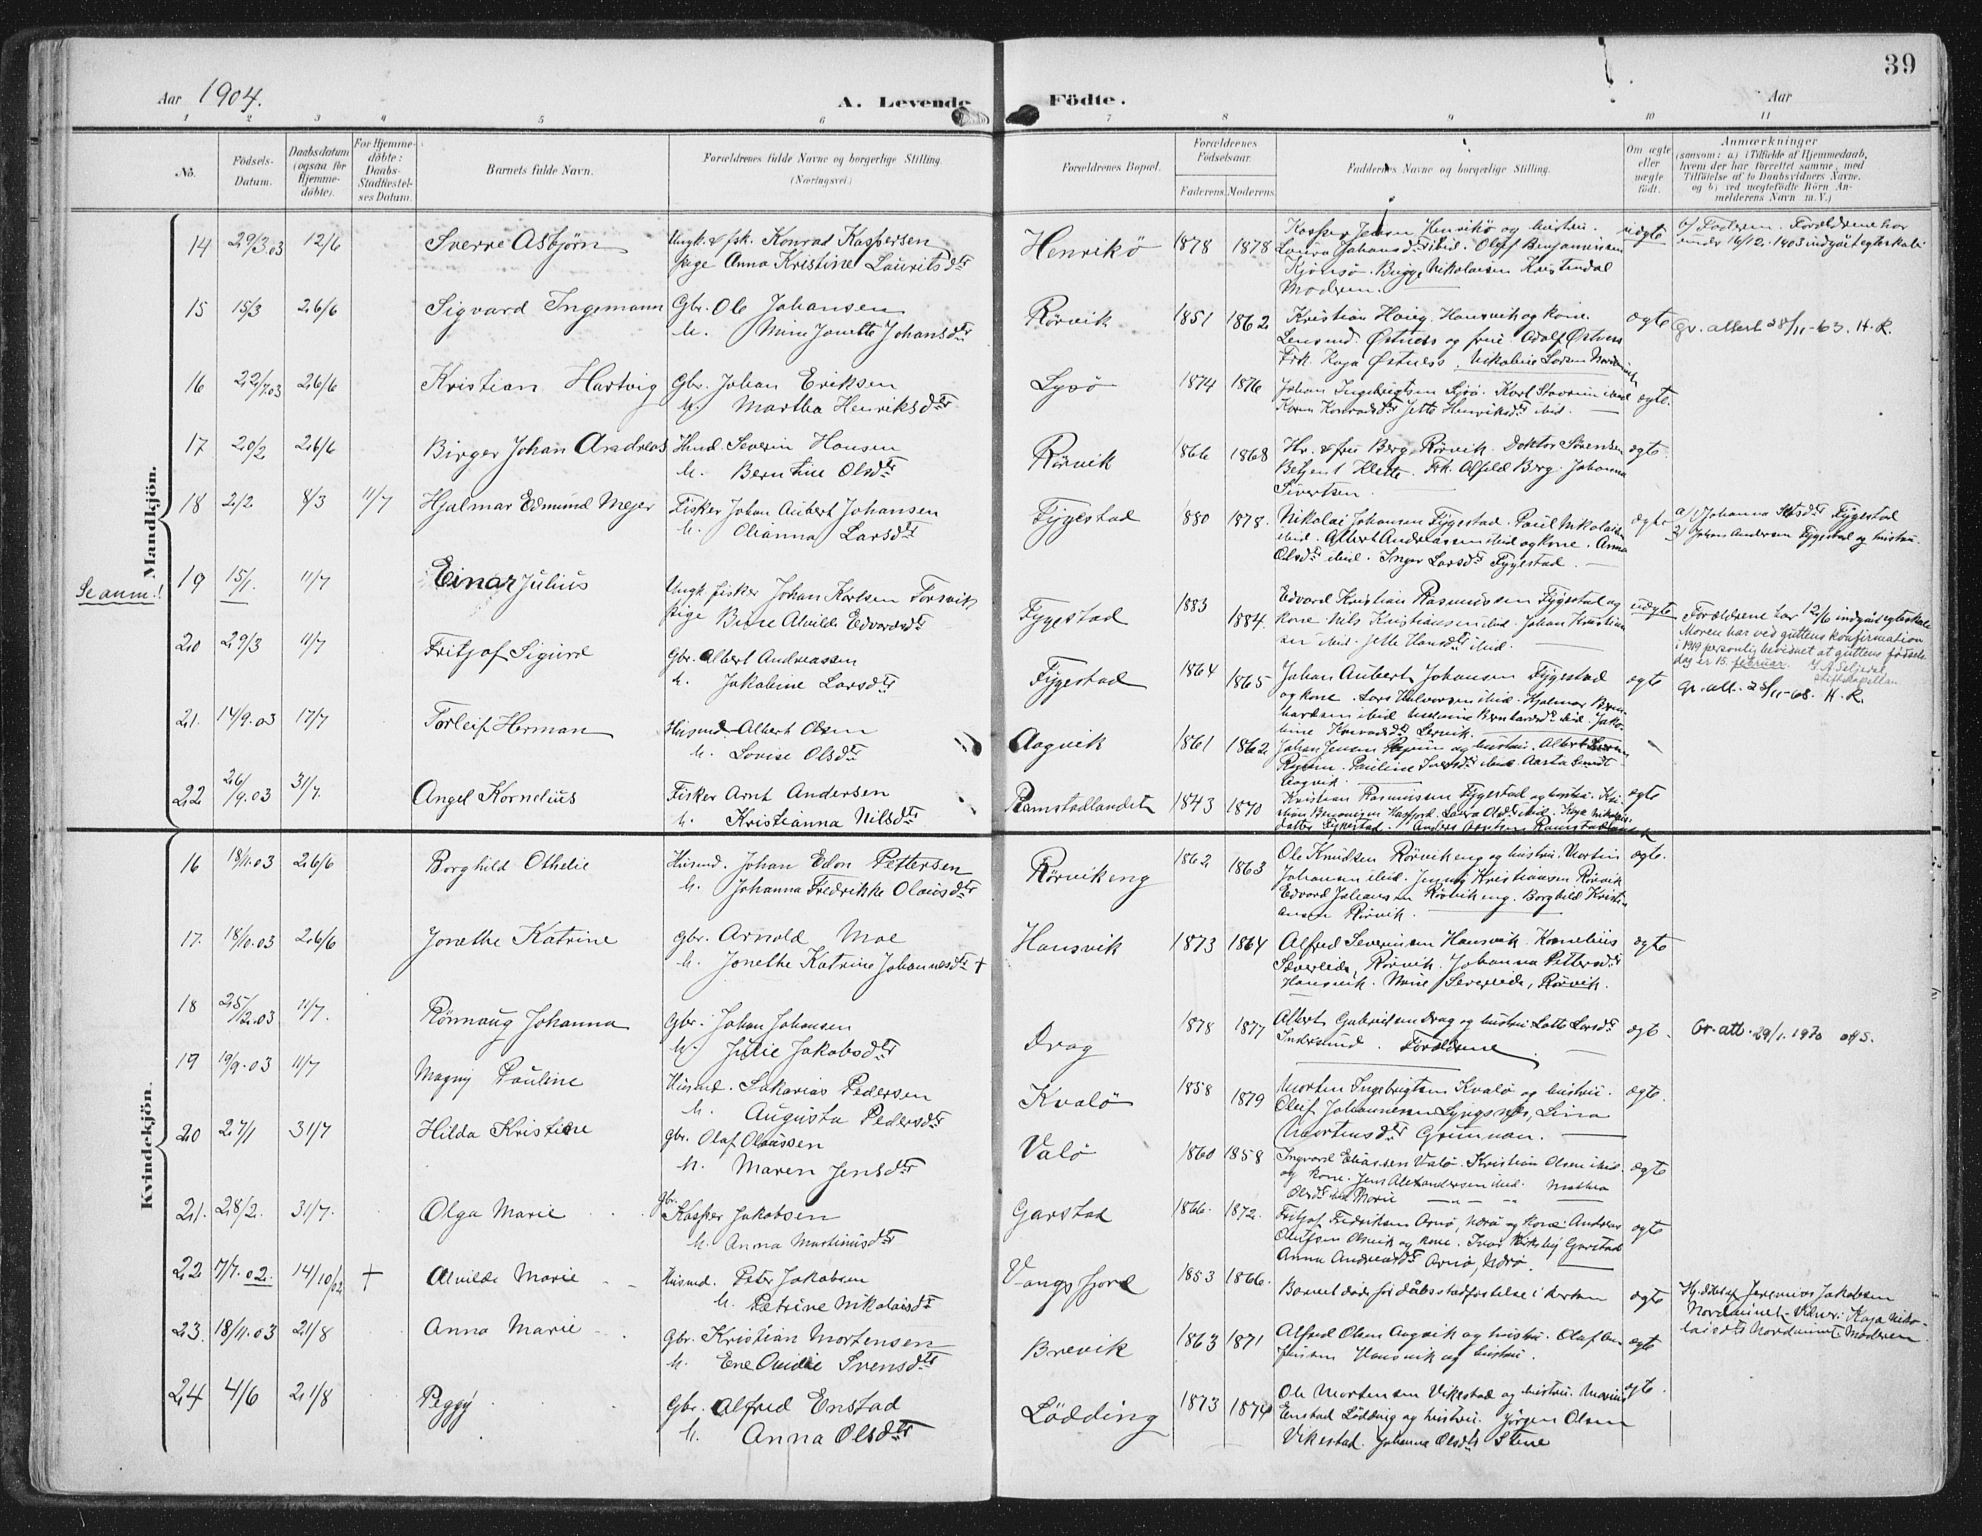 39
Aar 1904.
A. Levende Födte.
Aar
1 2 3 4 5 6 7 8 9 10 11
No.
Födsels-Datum.
Daabsdatum (ogsaa for Hjemme-döbte).
For Hjemme-döbte: Daabs-Stadfæstel-ses Datum.
Barnets fulde Navn.
Forældrenes fulde Navne og borgerlige Stilling.
(Næringsvei.)
Forældrenes Bopæl.
Forældrenes Födselsaar.
Faderens. Moderens.
Faddernes Navne og borgerlige Stilling.
Om ægte eller uægte født.
Anmærkninger
(saasom: a) i Tilfælde af Hjemmedaab,
hvem der har forrettet samme, med
Tilföielse af to Daabsvidners Navne.
og b) ved uegtefödte Börn An-
melderens Navn m. V.)
Mandkjön.
14 29/3.03 12/6 Sverre Asbjørn Ungk. & fsk. Konrad Kaspersen
Pige Anna Kristine Lauritsdtr
Henrikø 1878 1878
Kasper Jensen Henrikø og hustru.
Laura Johansdtr ibid. Olaf Benjaminsen
Kjønsø. Bugge Nikolaisen Kristendal
Moderen.
uægte
b) Faderen. Forældrene har
under 16/12. 1903 indgået egteskab.
15 15/3 26/6 Sigvard Ingemann Gbr. Ole Johansen
h. Mine Jonette Johansdtr
Rørvik 1851 1862
Kristian Haug, Hansvik og kone.
Lensmd. Østness og frue. Adolf Østness
Frk. Kaja Østness.
ægte
Gr. attest 28/11-63. H. R.
16 22/7.03 26/6 Kristian Hartvig Gbr. Johan Eriksen
h. Martha Henriksdtr
Lysø 1874 1876
Johan Ingebrigtsen Lysø. Karl Stavrum ibid
Karen Konradsdtr Jette Henriksdtr ibid.
ægte.
17 20/2 26/6 Birger Johan Andreas Husmd. Severin Hansen
h. Berntine Olsdtr
Rørvik 1866 1868
Hr. & fru Berg, Rørvik. Doktor Sørensen
Betjent Klette. Frk. Alfhild Berg. Johanna
Sivertsen.
ægte
18 2/2 8/3 11/7 Hjalmar Edmund Mejer Fisker Johan Aubert Johansen
h. Olianna Larsdtr
Fygestad 1880 1878.
Nikolai Johansen Fygestad. Paul Nikolaisen
ibid. Albert Andreassen ibid og kone. Anna
Olsdtr ibid. Inger Larsdtr Fygestad.
ægte
a) 1) Johanna Olsdtr Fygestad
2) Johan Andersen Fygestad og hustru.
Se anm.!
19 15/1. 11/7 Einar Julius Ungk. fisker Johan Karlsen Torsvik
Pige Bine Alvilde Edvardsdtr
Fygestad 1883 1884.
Edvard Kristian Rasmussen Fygestad og
kone. Nils Kristiansen ibid. Johan Kristian
sen ibid. Jette Hansdtr ibid.
uægte
Forældrene har 12/6 indgået egteskab.
Moren har ved guttens konfirmation
i 1919 personlig bevidnet at guttens fødsels-
dag er 15. februar. J. A. Seljedal
stiftskapellan
20 29/3 11/7 Fritjof Sigurd Gbr. Albert Andreassen
h. Jakobine Larsdtr
Fygestad 1864 1865
Johan Aubert Johansen Fygestad
og kone. Lars Halvorsen ibid. Hjalmar Bern-
hardsen ibid. Bernhardsdtr ibid. Jako-
bine Konradsdtr Lervik.
ægte
Gr. att. 23/11-68. H. R.
21. 14/9.03 17/7 Torleif Herman Husmd. Albert Olsen
h. Lovise Olsdtr
Aagvik 1861 1862
Johan Jensen og hustru. Albert
Pauline Iversdtr ibid. Aasta
Aagvik.
22 26/9.03 31/7. Angel Kornelius Fisker Arnt Andersen
h. Kristianna Nilsdtr
Ramstadlandet 1843 1870
Kristian Rasmussen Fygestad og hustru. Kri-
stian Benjaminsen Laura Olsdtr ibid. Kaja Nikolais-
datter Fygestad. Anders Arntsen Ramstadlandet
ægte
Kvindekjön.
16 18/11.03 26/6 Borghild Othelie Husmd. Johan Edon Pettersen
h. Johanna Fredrikke Olausdtr
Rørvikeng 1862 1863
Ole Knudsen Rørvikeng og hustru. Martin
Johansen ibid. Jenny Kristiansen Rørvik
Edvard Johansen Rørvikeng. Borghild Kristi-
ansen Rørvik.
ægte.
17. 18/10.03 26/6 Jonethe Katrine Gbr. Arnold Moe
h. Jonethe Katrine Johannesdtr +
Hansvik 1873 1864
Alfred Severinsen Hansvik. Kornelius
Sæverleide, Rørvik. Johanna Pettersdtr
Hansvik. Marie Severleide, Rørvik.
ægte
18 25/12.03 11/7. Rønnaug Johanna Gbr. Johan Johansen
h. Julie Jakobsdtr
Drag 1878 1877
Albert Gabrielsen Drag og hustru Lotte Larsdtr
Indresund. Forældrene
ægte.
Gr. att. 29/1. 1970 OHS.
19 19/9.03 11/7 Magny Pauline Husmd. Sakarias Pedersen
h. Augusta Pedersdtr
Kvalø 1858 1879
Morten Ingebrigtsen Kvalø og hustru.
Oleif Johannesen Lyngsnes, Lina
Mortensdtr Grunnan.
ægte.
20 27/1 31/7 Hilda Kristine Gbr. Olaf Olaussen
h. Maren Jensdtr
Valø 1860 1858
Ingvard Eliassen Valø. Kristian Olsen ibid
og kone. Jens Alexandersen ibid. Mathea
Olsdtr ibid Marie
ægte
21. 28/2. 31/7. Olga Marie Gbr. Kasper Jakobsen
h. Anna Martinusdtr
Garstad 1866. 1872.
Fritjof Fredriksen Arnø, Nærø og kone. Andreas
Olufsen Olsvik og kone. Ivar Garstad
Anna Andreasdtr Arnø, Nærø.
ægte
22 7/7.02. 14/10/02 + Alvilde Marie Husmd. Peter Jakobsen
h. Petrine Nikolaisdtr
Vangsfjord 1853 1866.
Barnet døde før dåbsstadfæstelse i kirken
ægte
Hj. døbt af Jeremias Jakobsen
Nordaunet. Vidner: Kaja Niko-
laisdtr Nordaunet. Moderen
23. 18/11.03 21/8 Anna Marie Gbr. Kristian Mortensen
h. Ene Ovidie Svensdtr
Brevik 1863 1871
Alfred Olsen Aagvik og hustru. Olaf An-
Hansvik og hustru.
ægte
24 4/6 21/8 Peggy Gbr. Alfred Enstad
h. Anna Olsdtr
Lødding 1873 1874
Ole Mortensen Vikestad og hustru. Marius
Enstad Lødding og hustru. Jørgen Olsen
Vikestad. Johanna Olsdtr Stene
ægte.